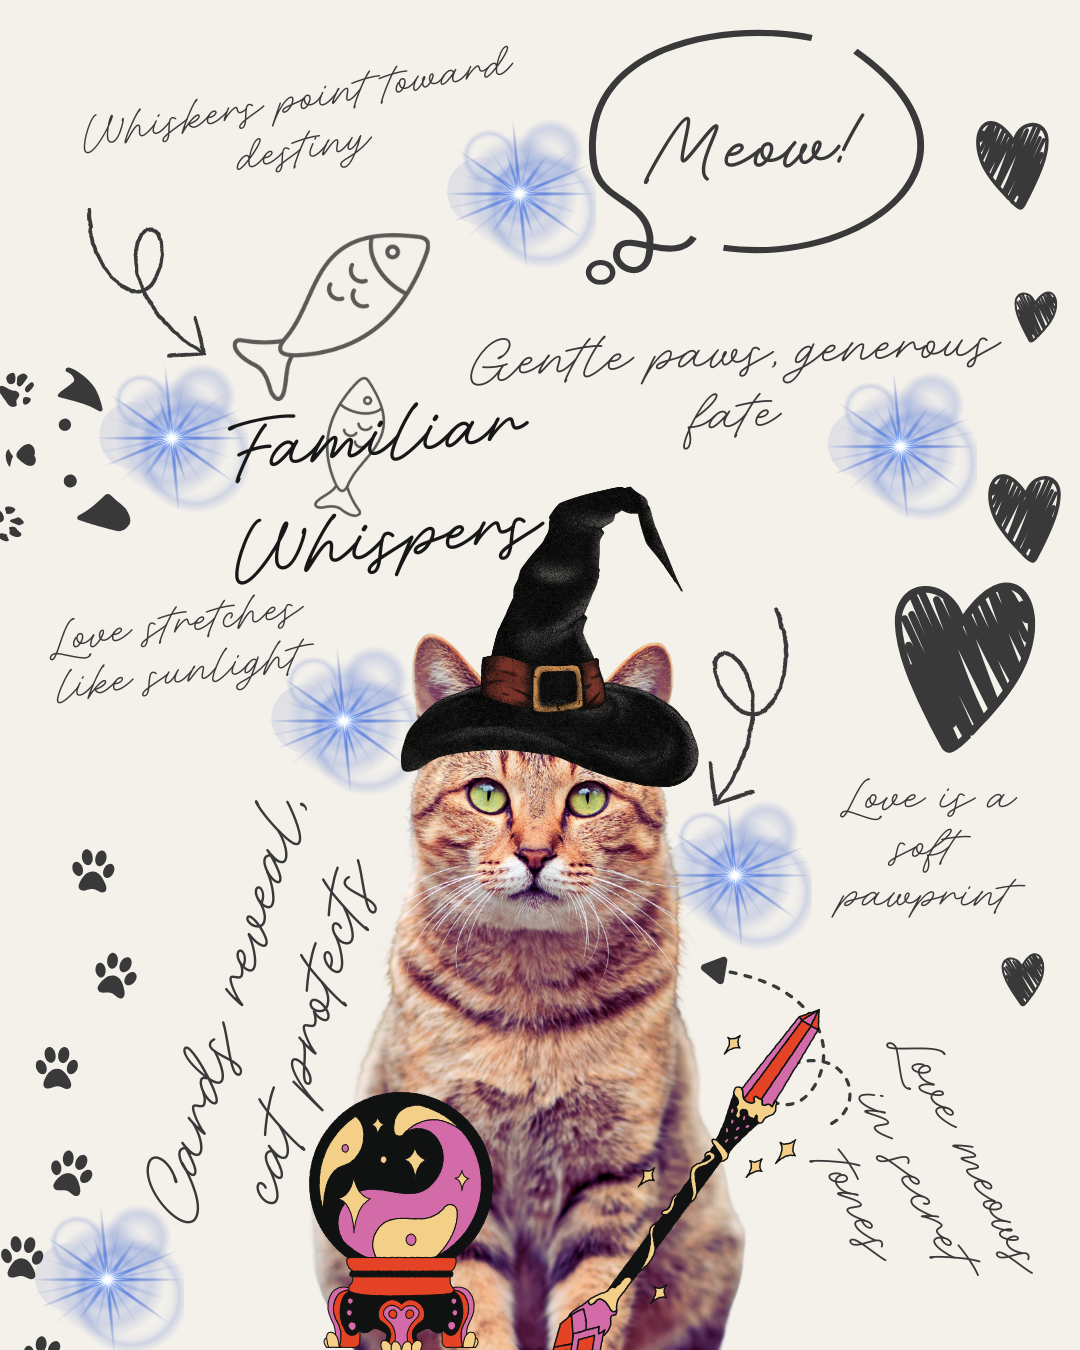 Whiskers point toward
destiny
Meow!
Gentle paws, generous
fate
Familiar
Whispers
Love stretches
like sunlight
Love is a
soft
pawprint
Cards reveal,
cat protects
Love meows
in secret
tones